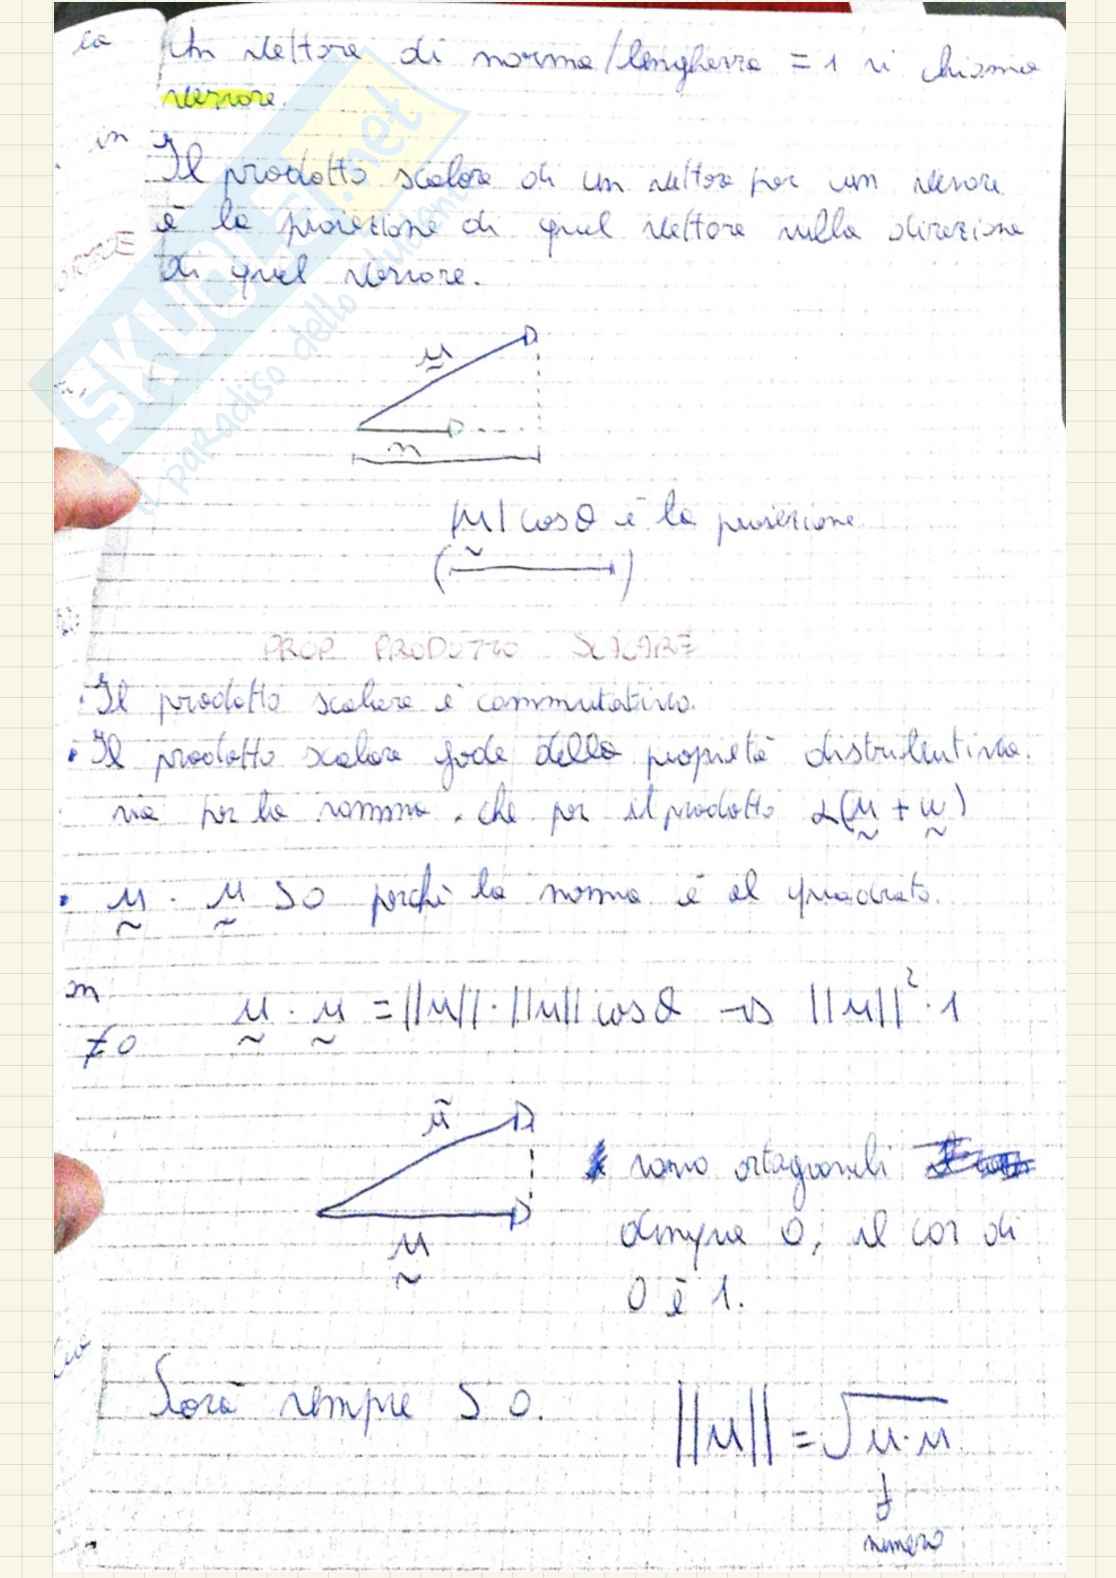 Un vettore di norma/lunghezza = 1 si chiama
versore.
in
Il prodotto scalare di un vettore per un versore
è la proiezione di quel vettore sulla direzione
di quel versore.
SKUOLA.net
il paradiso dello studente
u
n
|u| cosθ è la proiezione
( )
PROP PRODOTTO SCALARE
· Il prodotto scalare è commutativo.
· Il prodotto scalare gode della proprietà distributiva.
sia per la somma, che per il prodotto α(u + w)
· u · u > 0 perché la norma è al quadrato.
≠0
u · u = ||u|| · ||u|| cosθ → ||u||² · 1
u
u
sono ortogonali
dunque 0, il cos di
0 è 1.
Sarà sempre > 0.
||u|| = √u·u
numero